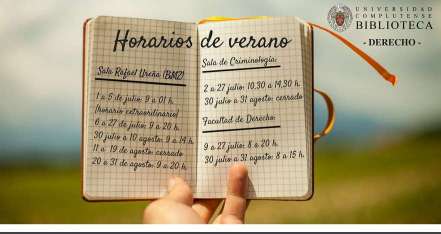 Horarios de verano
Sala Rafael Ureña (BJM2)
1 a 5 de julio: 9 a 01 h.
(horario extraordinario)
6 a 27 de julio: 9 a 20 h.
30 julio a 10 agosto: 9 a 14 h
11 a 19 de agosto: cerrado
20 a 31 de agosto: 9 a 20 h.
Sala de Criminología:
2 a 27 julio: 10,30 a 14,30 h.
30 julio a 31 agosto: cerrado
Facultad de Derecho:
9 a 27 julio: 8 a 20 h.
30 julio a 31 agosto: 8 a 15 h.
UNIVERSIDAD
COMPLUTENSE
BIBLIOTECA
- DERECHO -